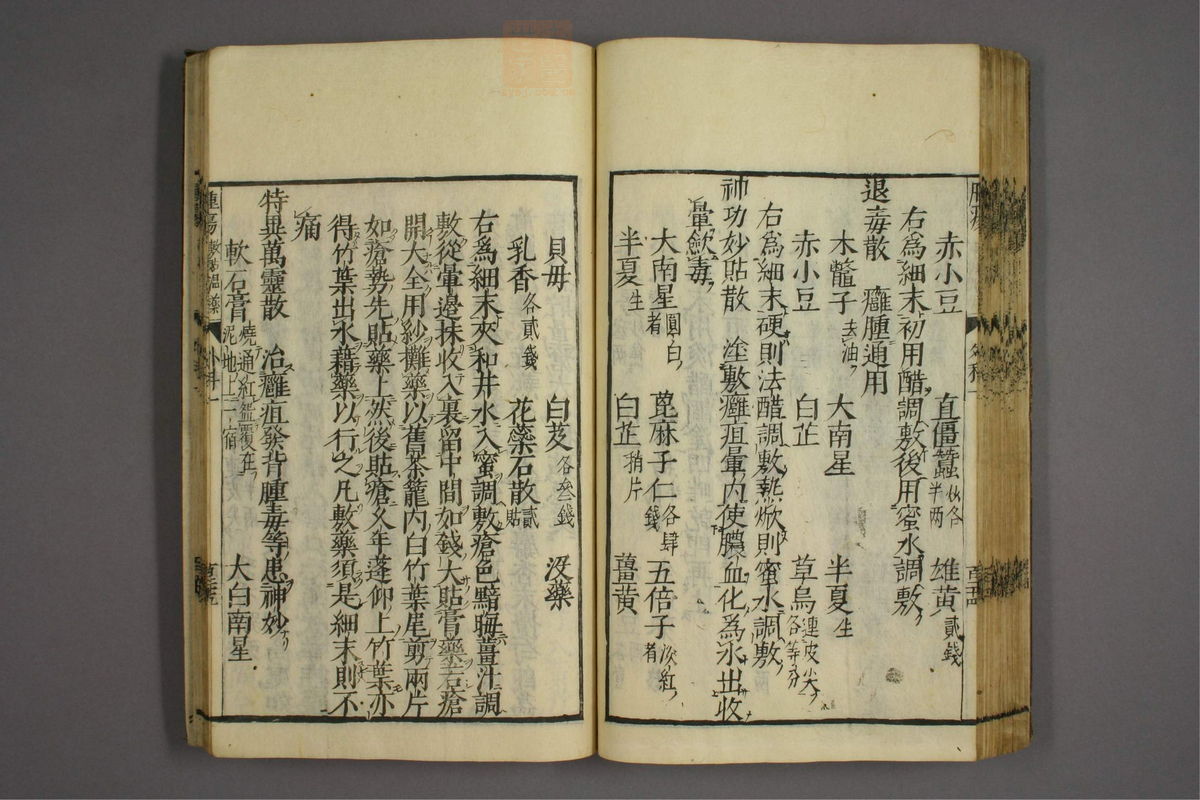 赤小豆　直僵蠶炒各半兩　雄黃貳錢
右為細末初用醋調敷後用蜜水調敷
退毒散　癰腫通用
木鼈子去油　大南星　半夏生
赤小豆　白芷　草烏連皮尖各等分
右為細末硬則法醋調敷熱焮則蜜水調敷
神功妙貼散　塗敷癰疽暈內使膿血化為水出收
暈斂毒
大南星圓白者　蓖麻子仁各肆錢　五倍子淡紅者
半夏生　白芷稍片　薑黃
貝母　白芨各叄錢　沒藥
乳香各貳錢　花蘂石散貳貼
右為細末夾和井水入蜜調敷瘡色黯晦薑汁調
敷從暈邊抹收入裏留中間如錢大貼膏藥若瘡
開大全用紗攤藥以舊茶籠內白竹葉尾剪兩片
如瘡勢先貼藥上然後貼瘡久年蓬仰上竹葉亦
得竹葉出水藉藥以行之凡敷藥須是細末則不
痛
特異萬靈散　治癰疽發背腫毒等患神妙
軟石膏燒通紅鑑覆在泥地上一宿　大白南星
腫瘍敷貼溫藥　外科一